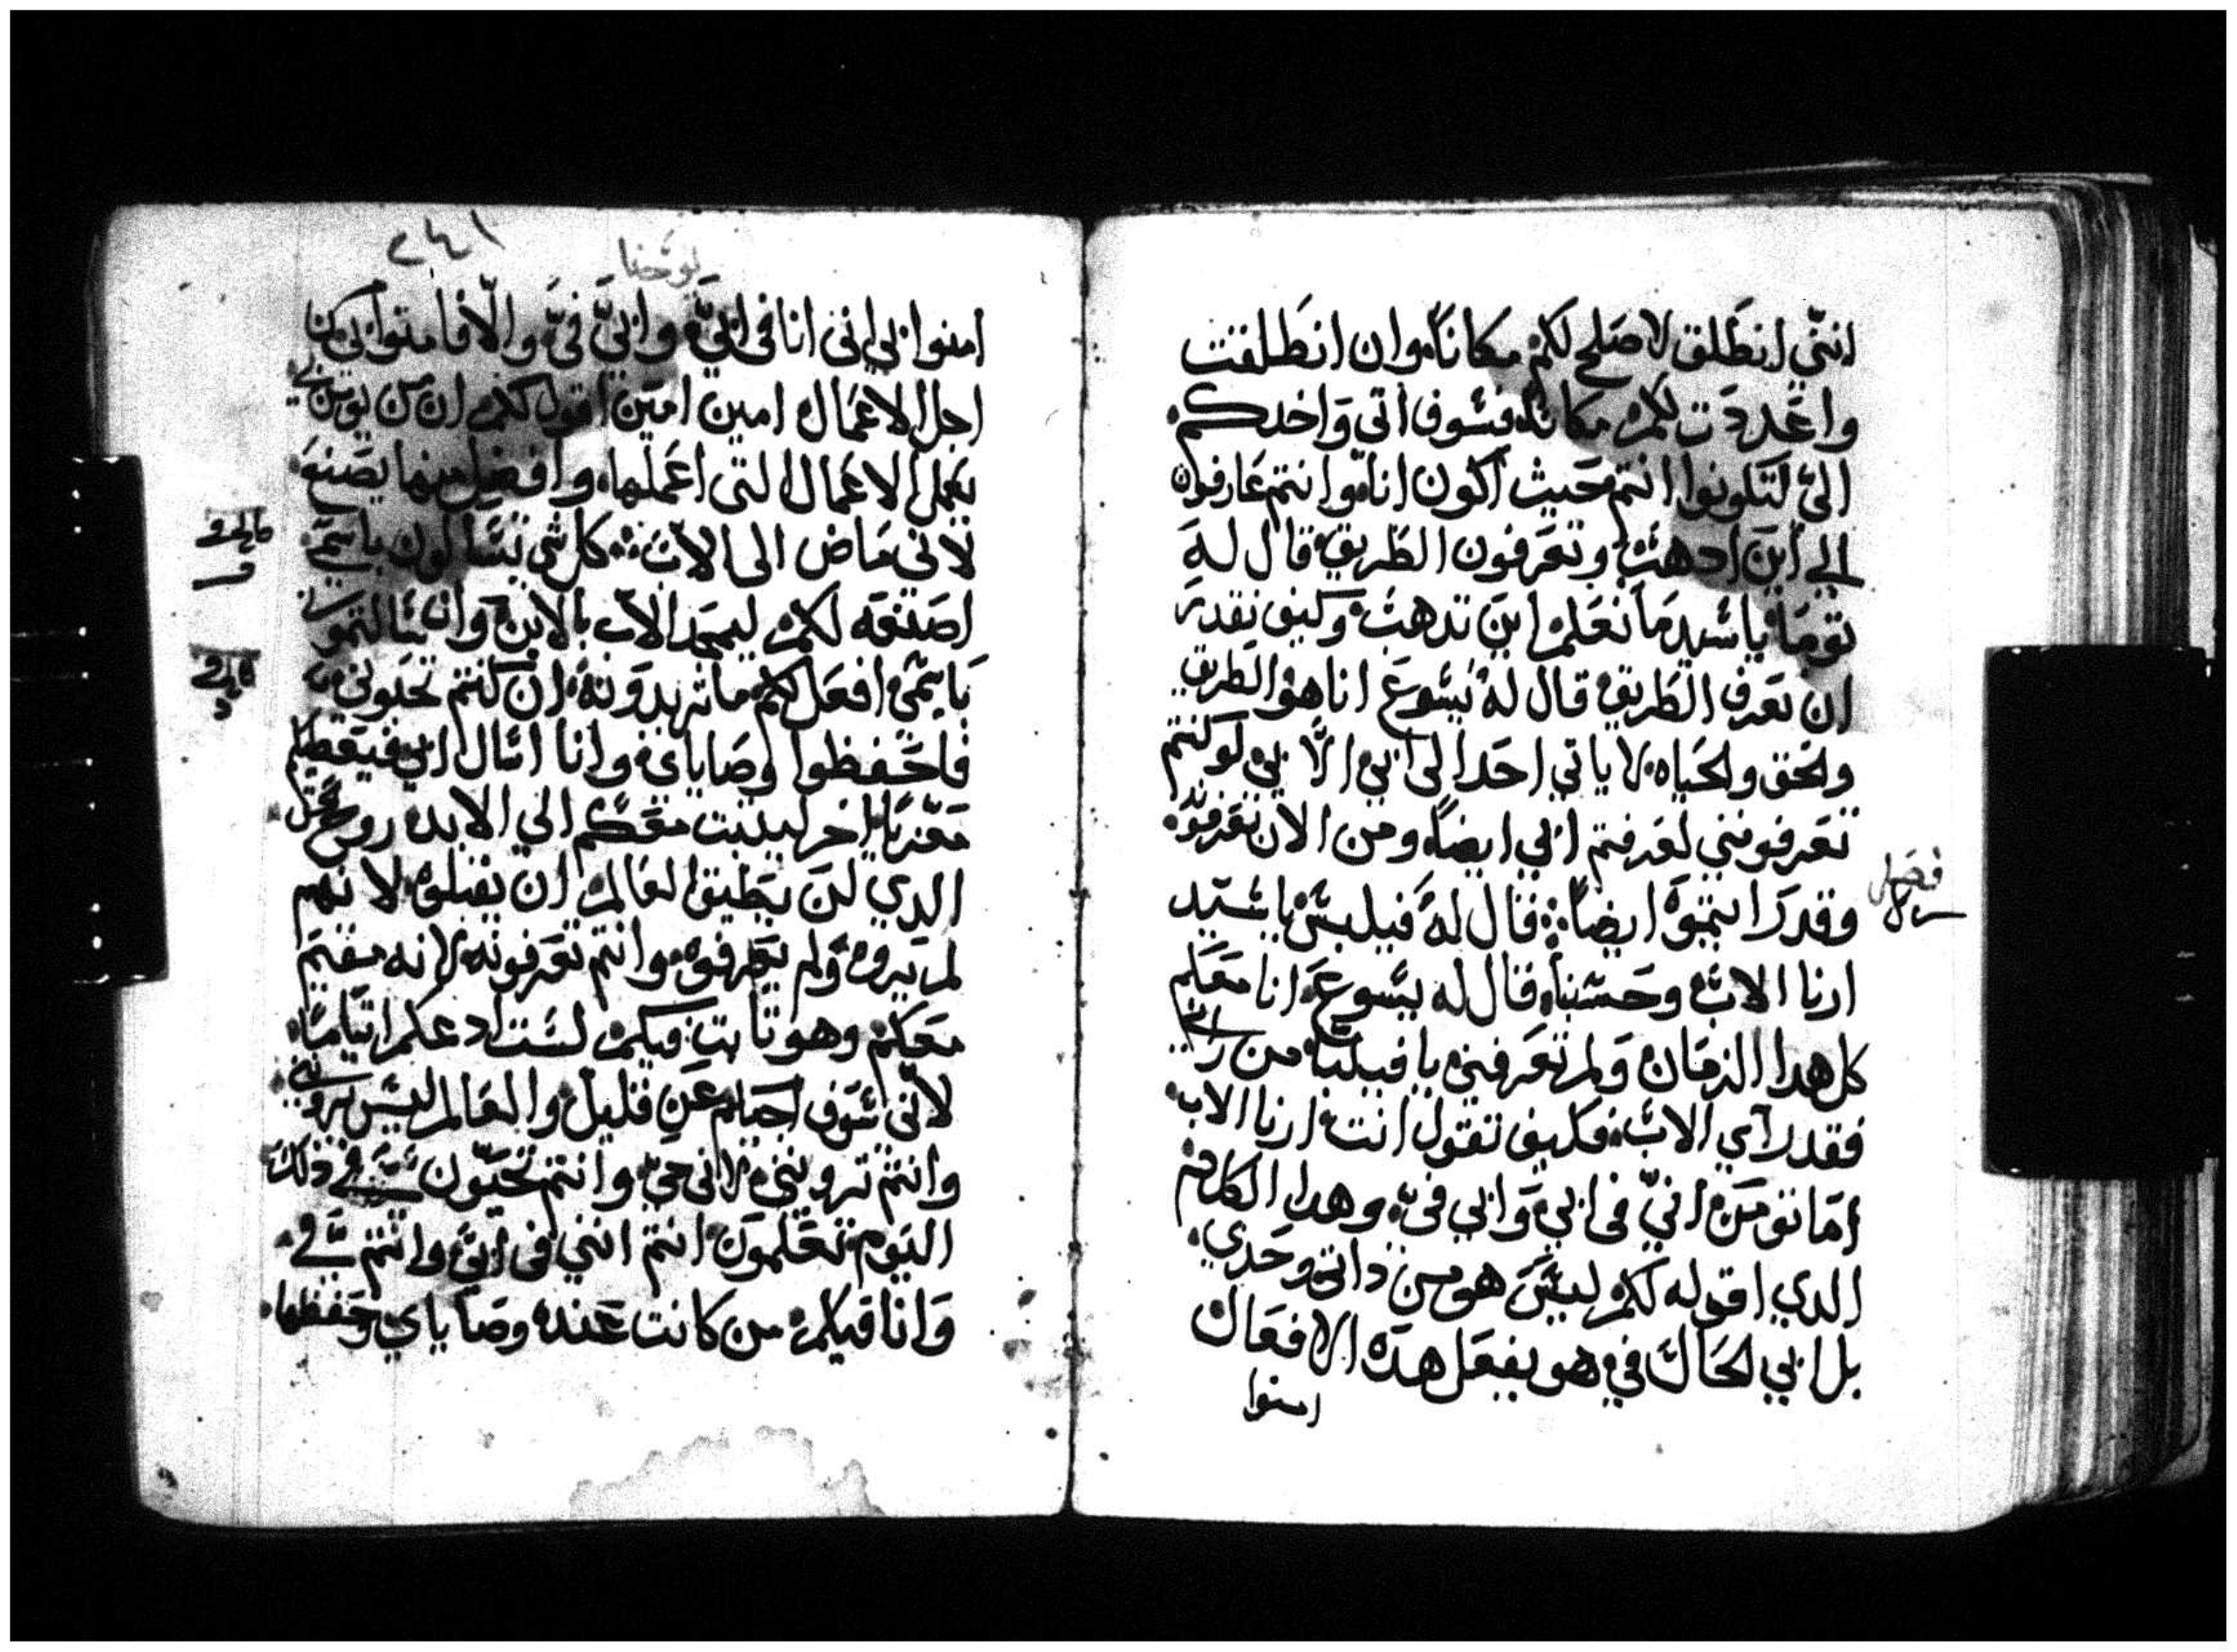 انني انطلق لاصلح لكم مكانًا وان انطلقت
واعددت لكم مكانًا فسوف اتي واخدكم
اليّ لتكونوا انتم حيث اكون انا وانتم عارفون
الي اين ادهب وتعرفون الطريق قال له
توما يا سيد ما نعلم اين تدهب وكيف نقدر
ان نعرف الطريق قال له يسوع انا هو الطريق
ولحق ولحياه لا ياتي احدا الى ابي الّا بي لو كنتم
تعرفونني لعرفتم ابي ايضاً ومن الان تعرفونه
وقد رايتموه ايضاً قال له فيلبس يا سيد
ارنا الاب وحسبنا قال له يسوع انا معكم
كل هدا الزمان ولم تعرفني يا فيلبس من راني
فقد راي الاب فكيف تقول انت ارنا الاب
اما تومن انيّ في ابي وابي فيّ وهدا الكلام
الدي اقوله لكم ليس هو من داتي وحدي
بل ابي لحال في هو يفعل هده الافعال
امنوا
فصل
٢٤١
يوحنا
امنوا بي انني انا في ابيّ وابيّ فيّ والّا فامنوا بي من
اجل الاعمال امين امين اقول لكم ان من يومن بي
يعمل الاعمال التى اعملها وافضل منها يصنع
لاني ماض الى الاب كل شي تسالون باسمي
اصنعه لكم ليمجد الاب بالابن وان سالتموني
باسمي افعل لكم ما تريدونه ان كنتم تحبوني
فاحفظوا وصاياي وانا اسال ابي فيعطيكم
معزيا اخر ليتبت معكم الي الابد روح الحق
الدي لن يطيق العالم ان يقبلوه لانهم
لم يروه ولم يعرفوه وانتم تعرفونه لانه مقيم
معكم وهو تابت فيكم لست ادعكم ايتاما
لاني سوف اجيكم عن قليل والعالم ليس يروني
وانتم ترونني لاني حي وانتم تحيون في ذلك
اليوم تعلمون انتم انني في ابي وانتم في
وانا فيكم من كانت عنده وصاياي وحفظها